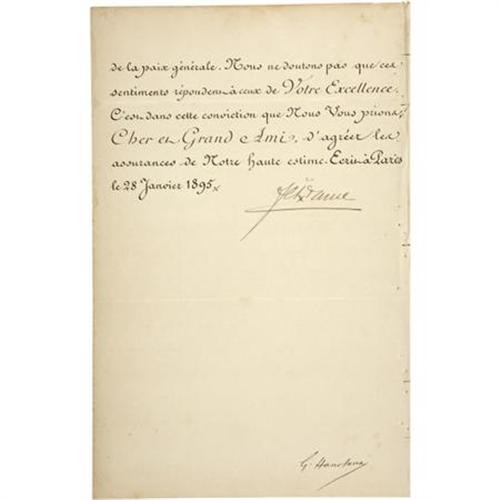 de la paix générale. Nous ne doutons pas que ces
sentiments répondent à ceux de Votre Excellence.
C'est dans cette conviction que Nous Vous prions,
Cher et Grand Ami, d'agréer les
assurances de Notre haute estime. Ecrit à Paris
le 28 Janvier 1895
Félix Faure
G. Hanotaux